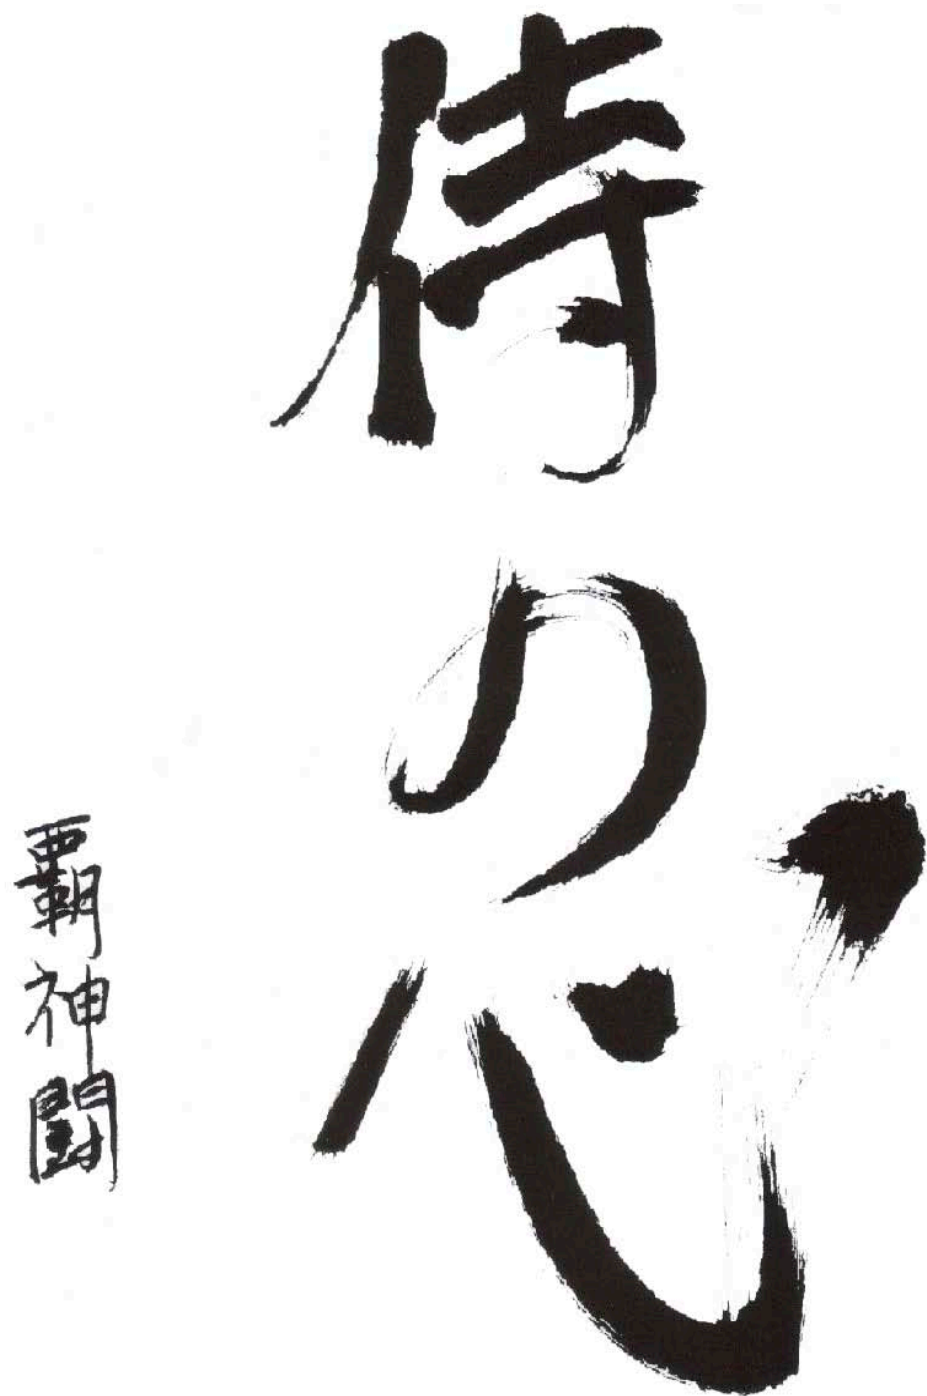 侍の心
覇神闘